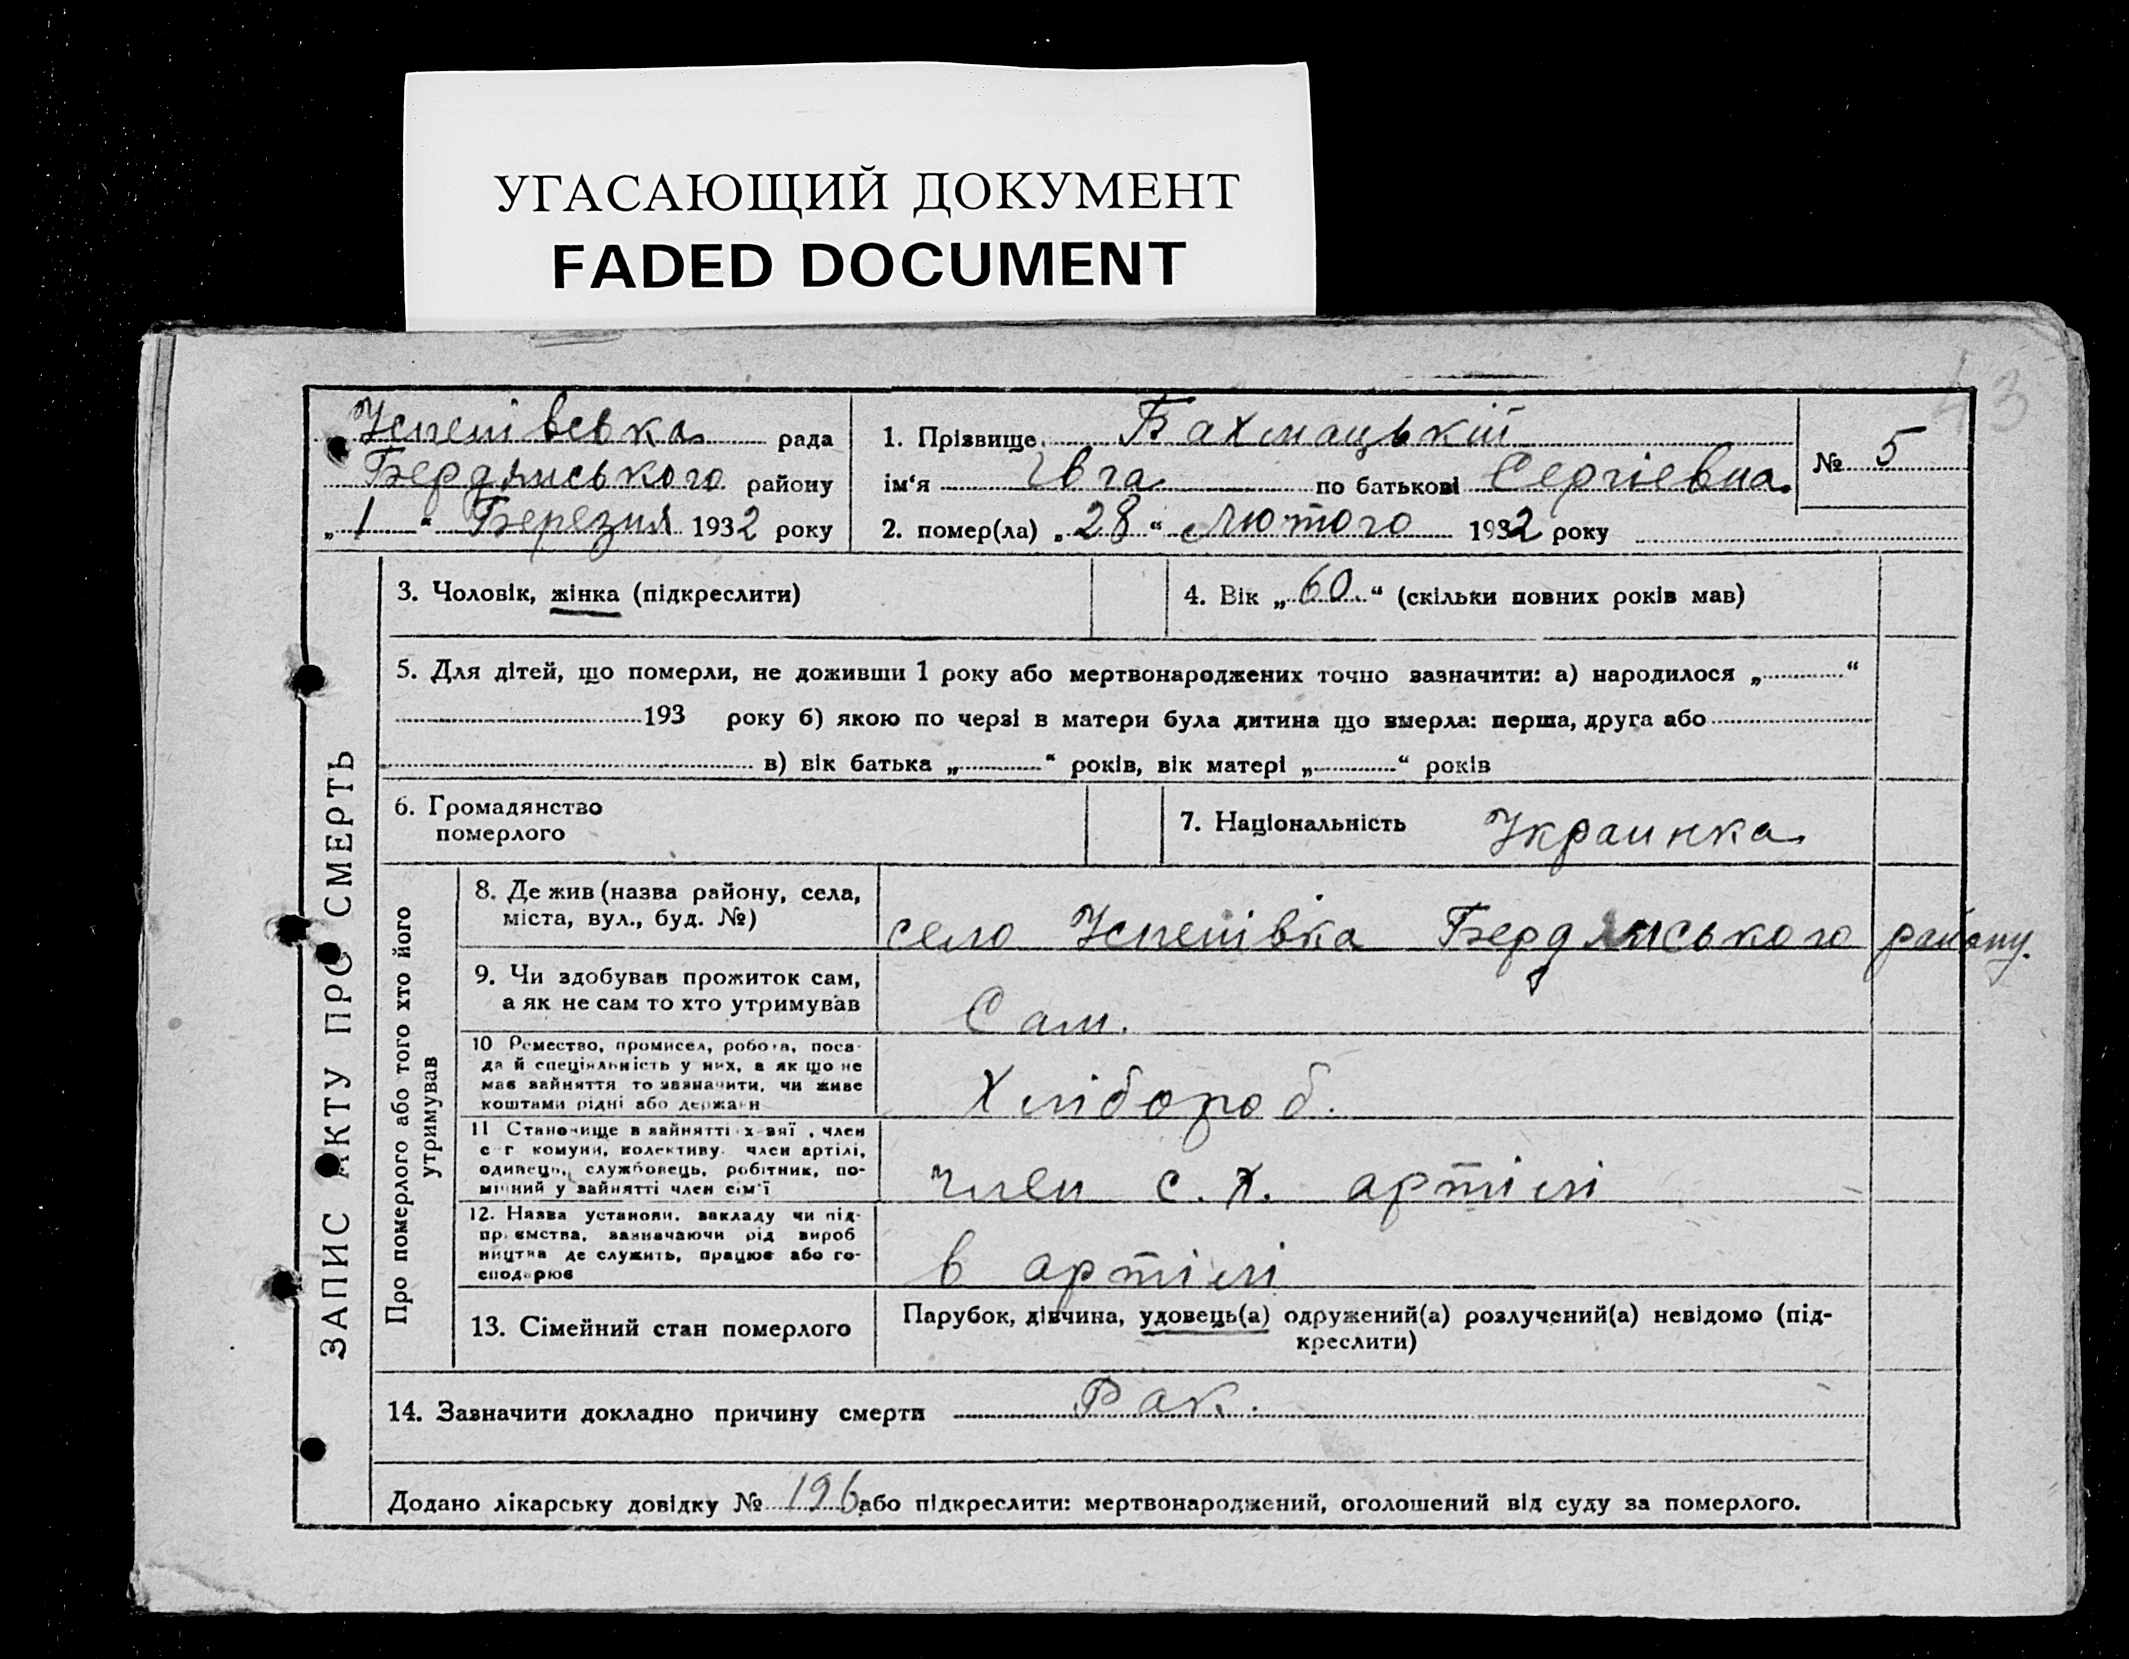 УГАСАЮЩИЙ ДОКУМЕНТ
FADED DOCUMENT
43
Успенівська рада
Бердянського району
„ 1 “ Березня 1932 року
1. Прізвище Бахмацькій
ім‘я Івга по батькові Сергіевна.
2. помер(ла) „ 28 “ Лютого 1932 року
№ 5
ЗАПИС АКТУ ПРО СМЕРТЬ
3. Чоловік, жінка (підкреслити)
4. Вік „ 60. “ (скільки повних років мав)
5. Для дітей, що померли, не доживши 1 року або мертвонароджених точно зазначити: а) народилося „ “
193 року б) якою по черзі в матери була дитина що вмерла: перша, друга або
в) вік батька „ “ років, вік матері „ “ років
6. Громадянство
померлого
7. Національність Украинка
Про померлого або того хто його
утримував
8. Де жив (назва району, села,
міста, вул., буд. №)
село Успенівка Бердянського району.
9. Чи здобував прожиток сам,
а як не сам то хто утримував
Сам.
10 Ремество, промисел, робота, поса-
да й спеціяльність у них, а як що не
має зайняття то зазначити, чи живе
коштами рідні або держави
Хлібороб.
11 Становище в зайнятті: хазяї , член
с г комуни, колективу, член артілі,
одинець, службовець, робітник, по-
мічний у зайнятті член сім'ї
член с. х. артілі
12. Назва установи, закладу чи під-
приємства, зазначаючи рід вироб
ництва де служить, працює або го-
сподарює
в артілі
13. Сімейний стан померлого
Парубок, дівчина, удовець(а) одружений(а) розлучений(а) невідомо (під-
креслити)
14. Зазначити докладно причину смерти Рак.
Додано лікарську довідку № 196 або підкреслити: мертвонароджений, оголошений від суду за померлого.